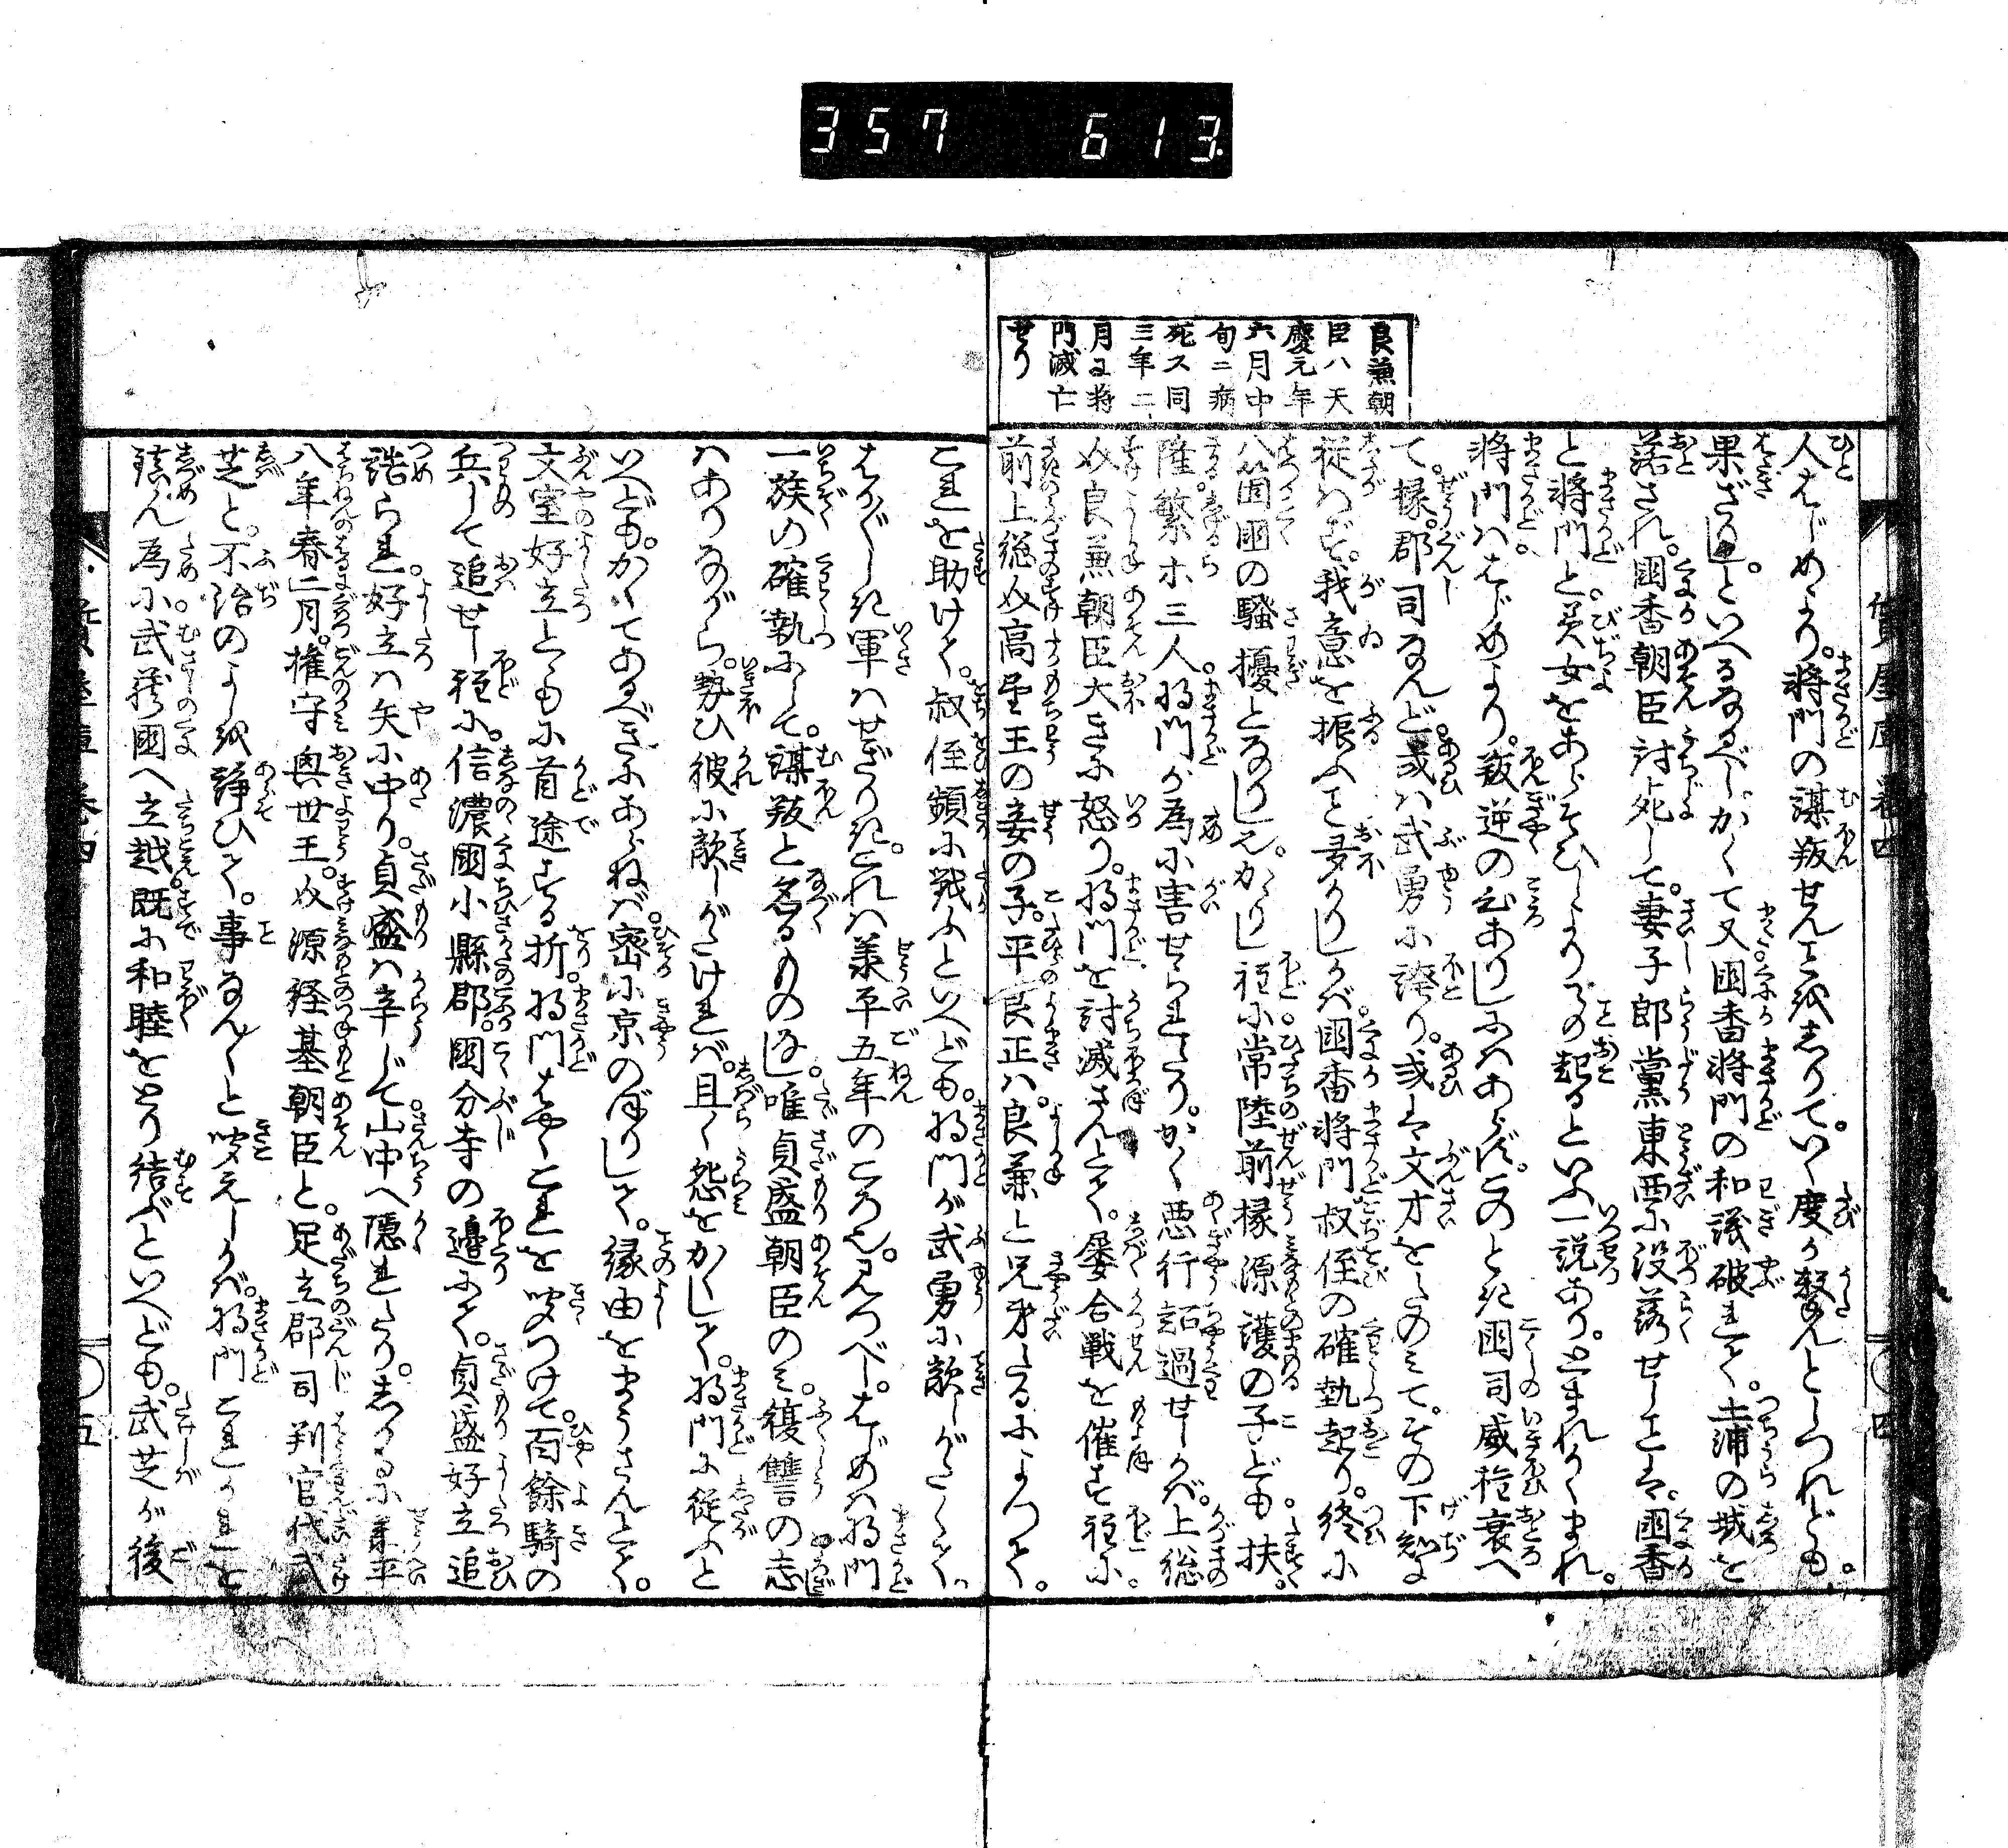 357 613
良兼朝
臣ハ天
慶元年
六月中
旬ニ病
死ス同
三年二
月ニ将
門滅亡
せり
人はじめより。将門の謀叛せんことをしりて。いく度か撃んとしつれども。
果ざりし。といへるなるべし。かくて又国香将門の和議破れて。土浦の城を
落され。国香朝臣討死して。妻子郎党東西に没落せしことは。国香
と将門と。美女をあらそひしよりことの起るといふ一説あり。とまれかくまれ。
将門ははじめより。叛逆の心ありしにはあらず。このとき国司威権衰へ
て。掾。郡司なんど。或は武勇に誇り。或は文才をたのみて。その下知に
従はず。我意を振ふこと多かりしかば。国香将門叔侄の確執起り。終に
八箇国の騒擾となりしなり。かゝりし程に常陸前掾源護の子ども。扶。
隆。繁ホ三人。将門が為に害せられたり。かく悪行超過せしかば。上総
介良兼朝臣大きに怒り。将門を討滅さんとて。屡合戦を催す程に。
前上総介高望王の妾の子。平良正は。良兼と兄弟たるによつて。
これを助けて。叔侄頻に戦ふといへども。将門が武勇に敵しがたくて。
はか〴〵しき軍はせざりき。これは承平五年のころなるべし。はじめは将門
一族の確執にして。謀叛と名るものなし。唯貞盛朝臣のみ。復讐の志
はありながら。勢ひ彼に敵しがたければ。且く怨をかくして。将門に従ふと
いへども。かくてあるべきにあらねば。密に京のぼりして。縁由をまうさんとて。
文室好立とゝもに首途する折。将門はやくこれを聞つけて。百餘騎の
兵して追せし程に。信濃国小縣郡。国分寺の邊にて。貞盛好立追
詰られ。好立は矢に中り。貞盛は辛じて山中へ隠れたり。しかるに承平
八年春二月。権守興世王。介源経基朝臣と。足立郡司判官代武
芝と。不治のよしを諍ひて。事なん〳〵と聞えしかば。将門これかれを
鎮ん為に武蔵国へ立越。既に和睦をとり結ぶといへども。武芝が後
四
五